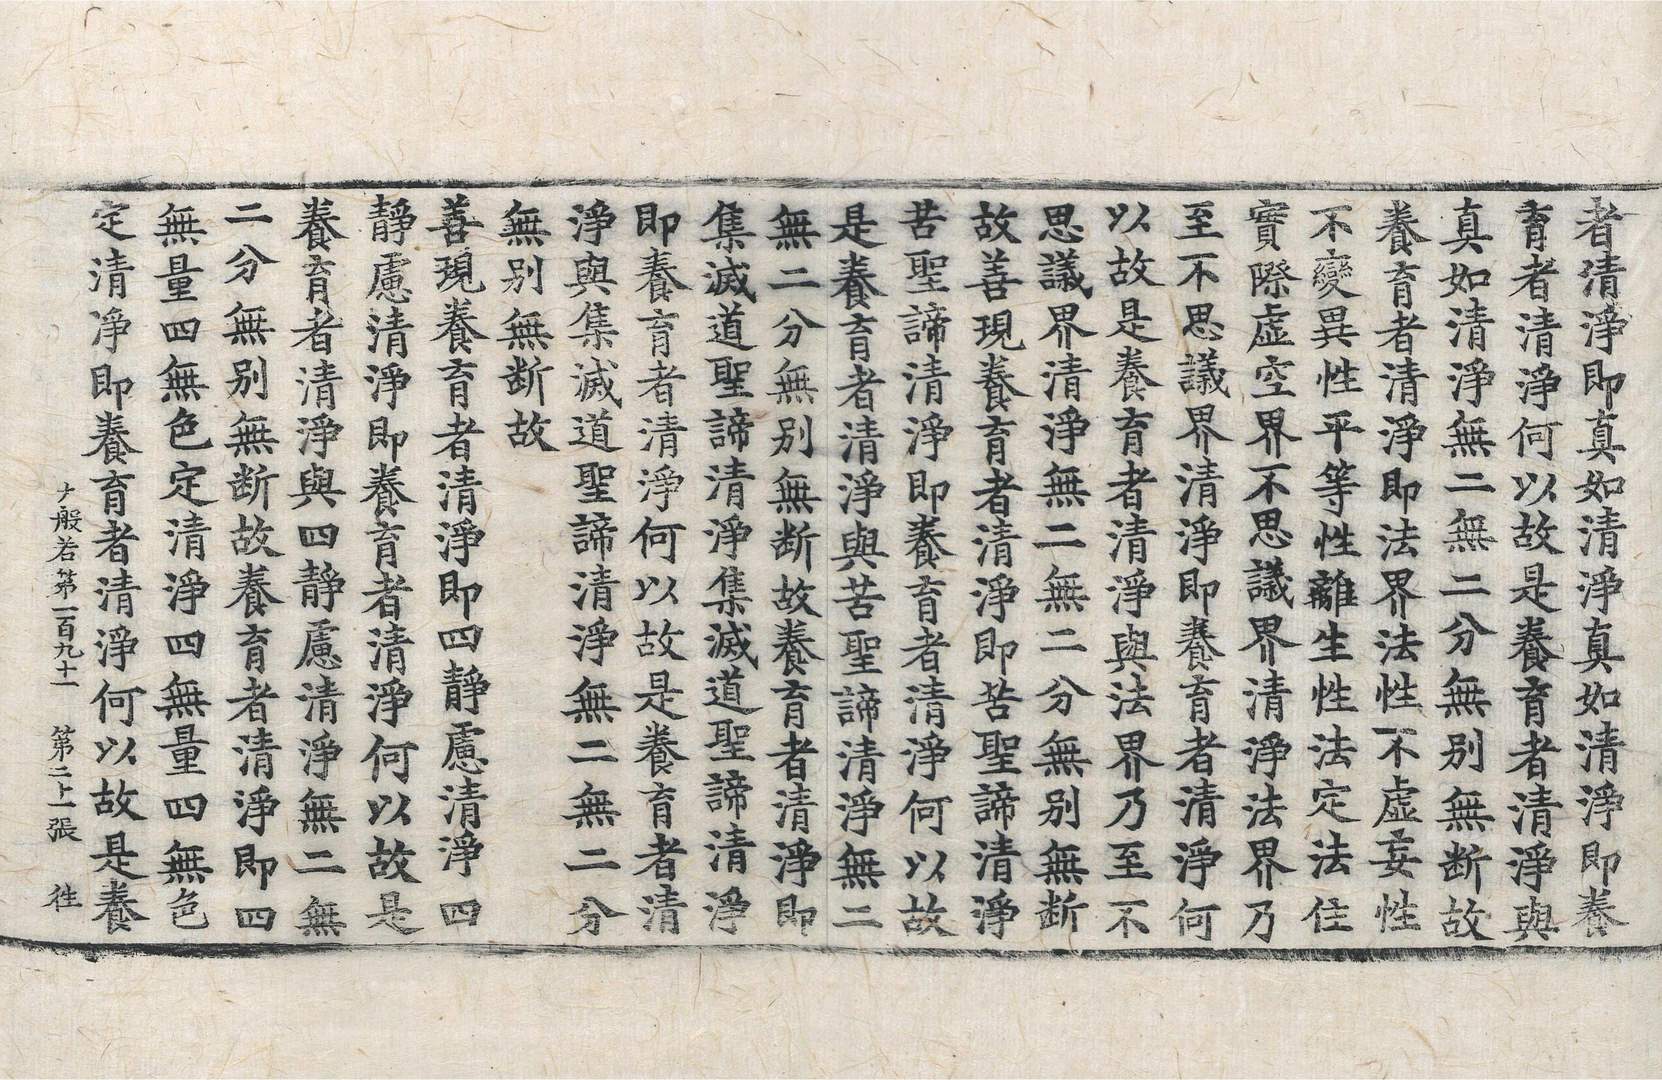 者清淨即真如清淨真如清淨即養
育者清淨何以故是養育者清淨與
真如清淨無二無二分無別無断故
養育者清淨即法界法性不虛妄性
不變異性平等性離生性法定法住
實際虛空界不思議界清淨法界乃
至不思議界清淨即養育者清淨何
以故是養育者清淨與法界乃至不
思議界清淨無二無二分無別無断
故善現養育者清淨即苦聖諦清淨
苦聖諦清淨即養育者清淨何以故
是養育者清淨與苦聖諦清淨無二
無二分無別無断故養育者清淨即
集滅道聖諦清淨集滅道聖諦清淨
即養育者清淨何以故是養育者清
淨與集滅道聖諦清淨無二無二分
無別無断故
善現養育者清淨即四靜慮清淨四
靜慮清淨即養育者清淨何以故是
養育者清淨與四靜慮清淨無二無
二分無別無断故養育者清淨即四
無量四無色定清淨四無量四無色
定清淨即養育者清淨何以故是養
般若第一百九十一 第二十一張 徃